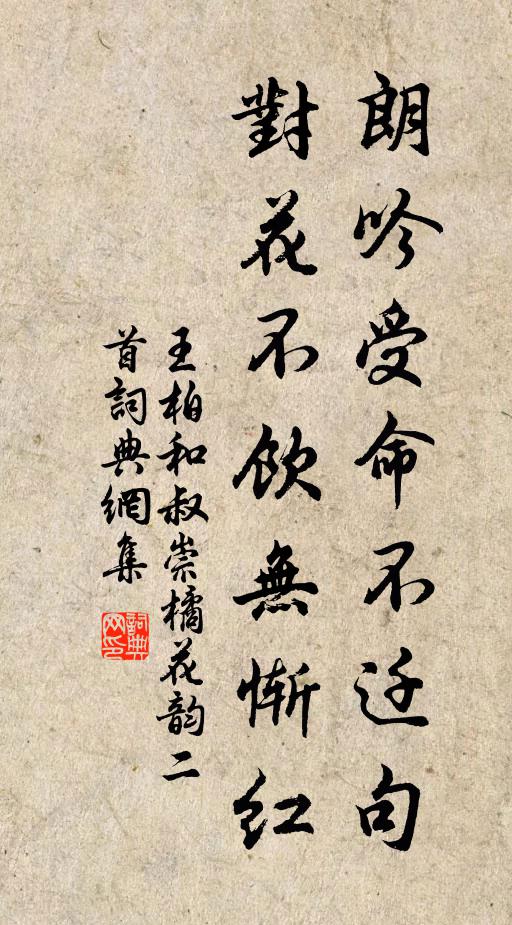 朗吟受命不迁句
對花不飲無慚紅
王柏和叔崇橘花韵二
首詞典網集
詞典网印